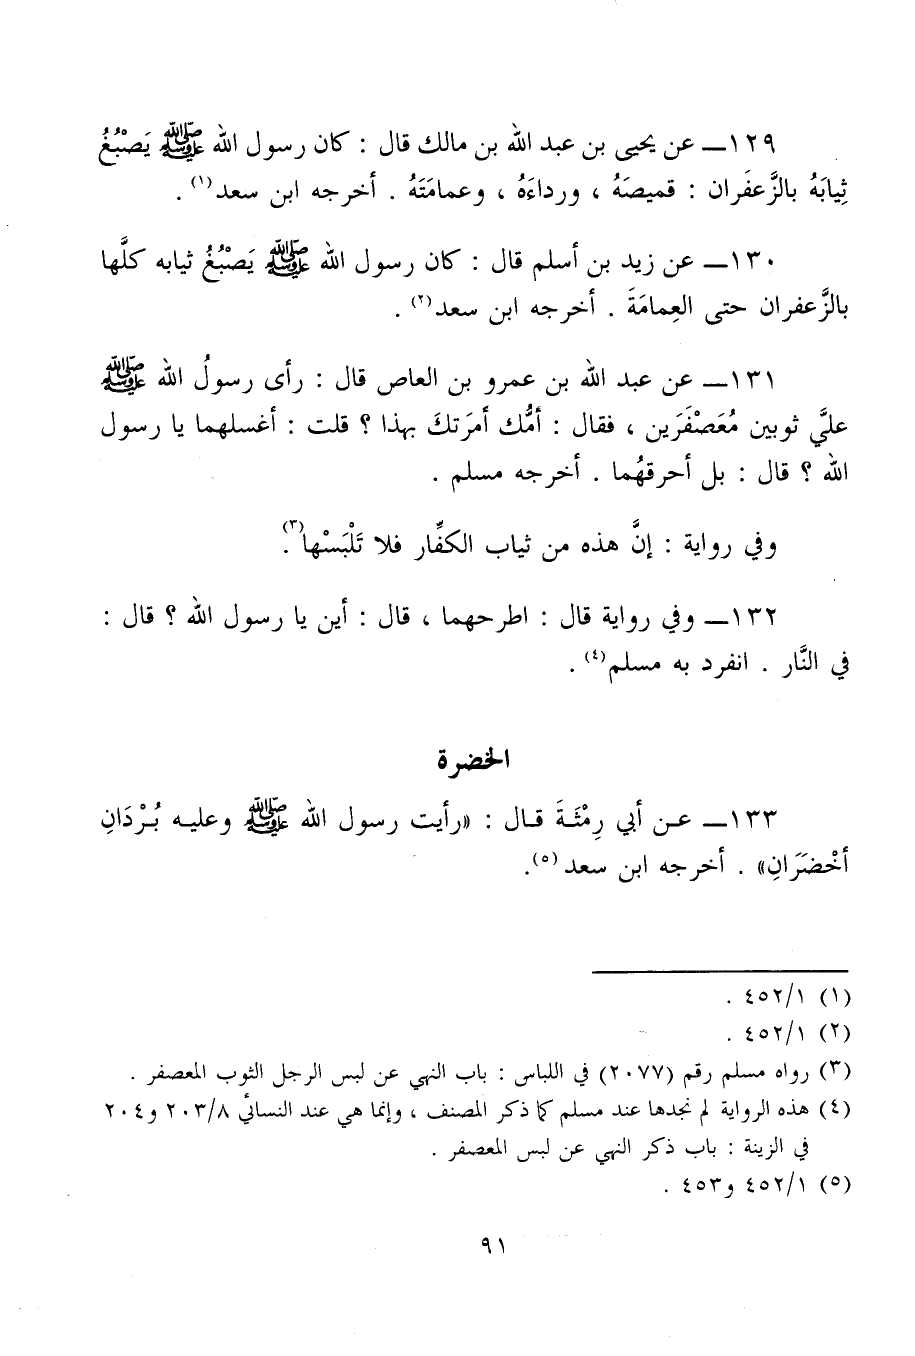 ١٢٩ــ عن يحيى بن عبد الله بن مالك قال : كان رسول الله ﷺ يَصْبُغُ
ثِيابَهُ بالزَّعفَران : قميصَهُ ، ورداءَهُ ، وعمامَتَهُ . أخرجه ابن سعد(١) .
١٣٠ــ عن زيد بن أسلم قال : كان رسول الله ﷺ يَصْبُغُ ثيابه كلَّها
بالزَّعفران حتى العِمامَةَ . أخرجه ابن سعد(٢) .
١٣١ــ عن عبد الله بن عمرو بن العاص قال : رأى رسولُ الله ﷺ
عليَّ ثوبين مُعَصْفَرَين ، فقال : أمُّك أمرَتكَ بهذا ؟ قلت : أغسلهما يا رسول
الله ؟ قال : بل أحرقهُما . أخرجه مسلم .
وفي رواية : إنَّ هذه من ثياب الكفِّار فلا تَلْبَسْها(٣).
١٣٢ــ وفي رواية قال : اطرحهما ، قال : أين يا رسول الله ؟ قال :
في النَّار . انفرد به مسلم(٤) .
الخضرة
١٣٣ــ عن أبي رِمْثَةَ قال : «رأيت رسول الله ﷺ وعليه بُرْدَانِ
أخْضَرَانِ» . أخرجه ابن سعد(٥).
(١) ٤٥٢/١ .
(٢) ٤٥٢/١ .
(٣) رواه مسلم رقم (٢٠٧٧) في اللباس : باب النهي عن لبس الرجل الثوب المعصفر .
(٤) هذه الرواية لم نجدها عند مسلم كما ذكر المصنف ، وإنما هي عند النسائي ٢٠٣/٨ و٢٠٤
في الزينة : باب ذكر النهي عن لبس المعصفر .
(٥) ٤٥٢/١ و٤٥٣ .
٩١